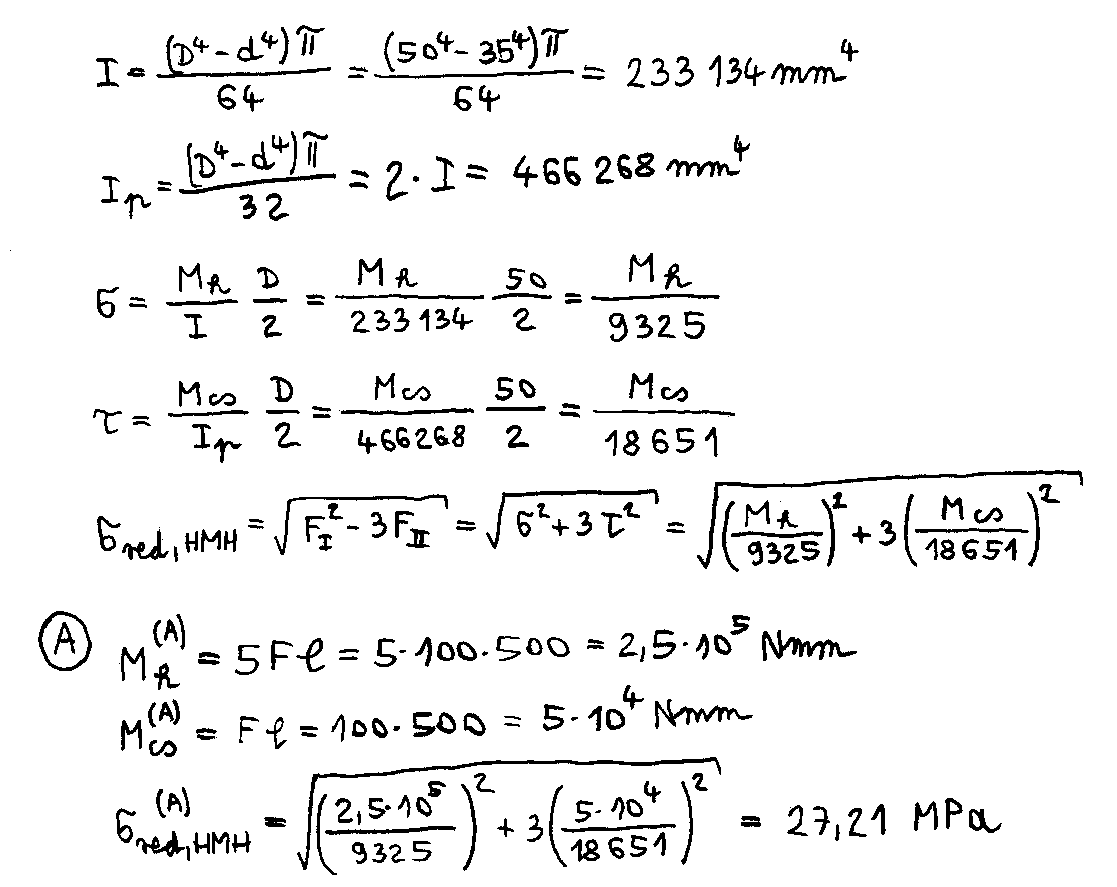 I = (D⁴-d⁴)π/64 = (50⁴-35⁴)π/64 = 233 134 mm⁴
I_p = (D⁴-d⁴)π/32 = 2·I = 466 268 mm⁴
σ = M_h/I D/2 = M_h/233 134 50/2 = M_h/9325
τ = M_cs/I_p D/2 = M_cs/466268 50/2 = M_cs/18651
σ_red,HMH = √(F_I² - 3F_II) = √(σ² + 3τ²) = √((M_h/9325)² + 3(M_cs/18651)²)
(A) M_h^(A) = 5Fℓ = 5·100·500 = 2,5·10⁵ Nmm
M_cs^(A) = Fℓ = 100·500 = 5·10⁴ Nmm
σ_red,HMH^(A) = √((2,5·10⁵/9325)² + 3(5·10⁴/18651)²) = 27,21 MPa